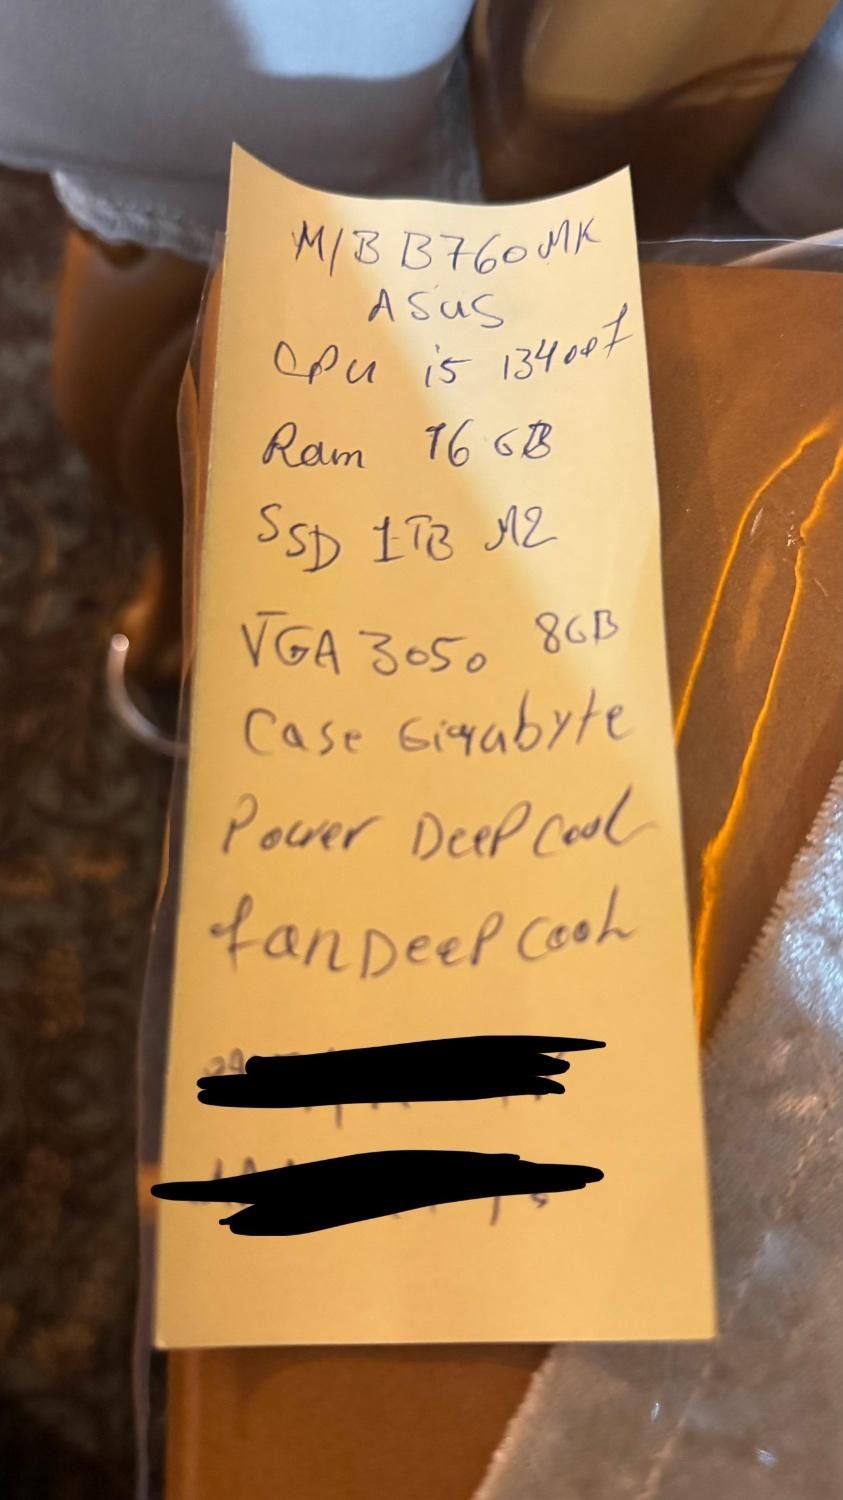 M/B B760MK
ASUS
CPU i5 13400f
Ram 16 GB
SSD 1TB M2
VGA 3050 8GB
Case Gigabyte
Power DeeP Cool
fan DeeP Cool